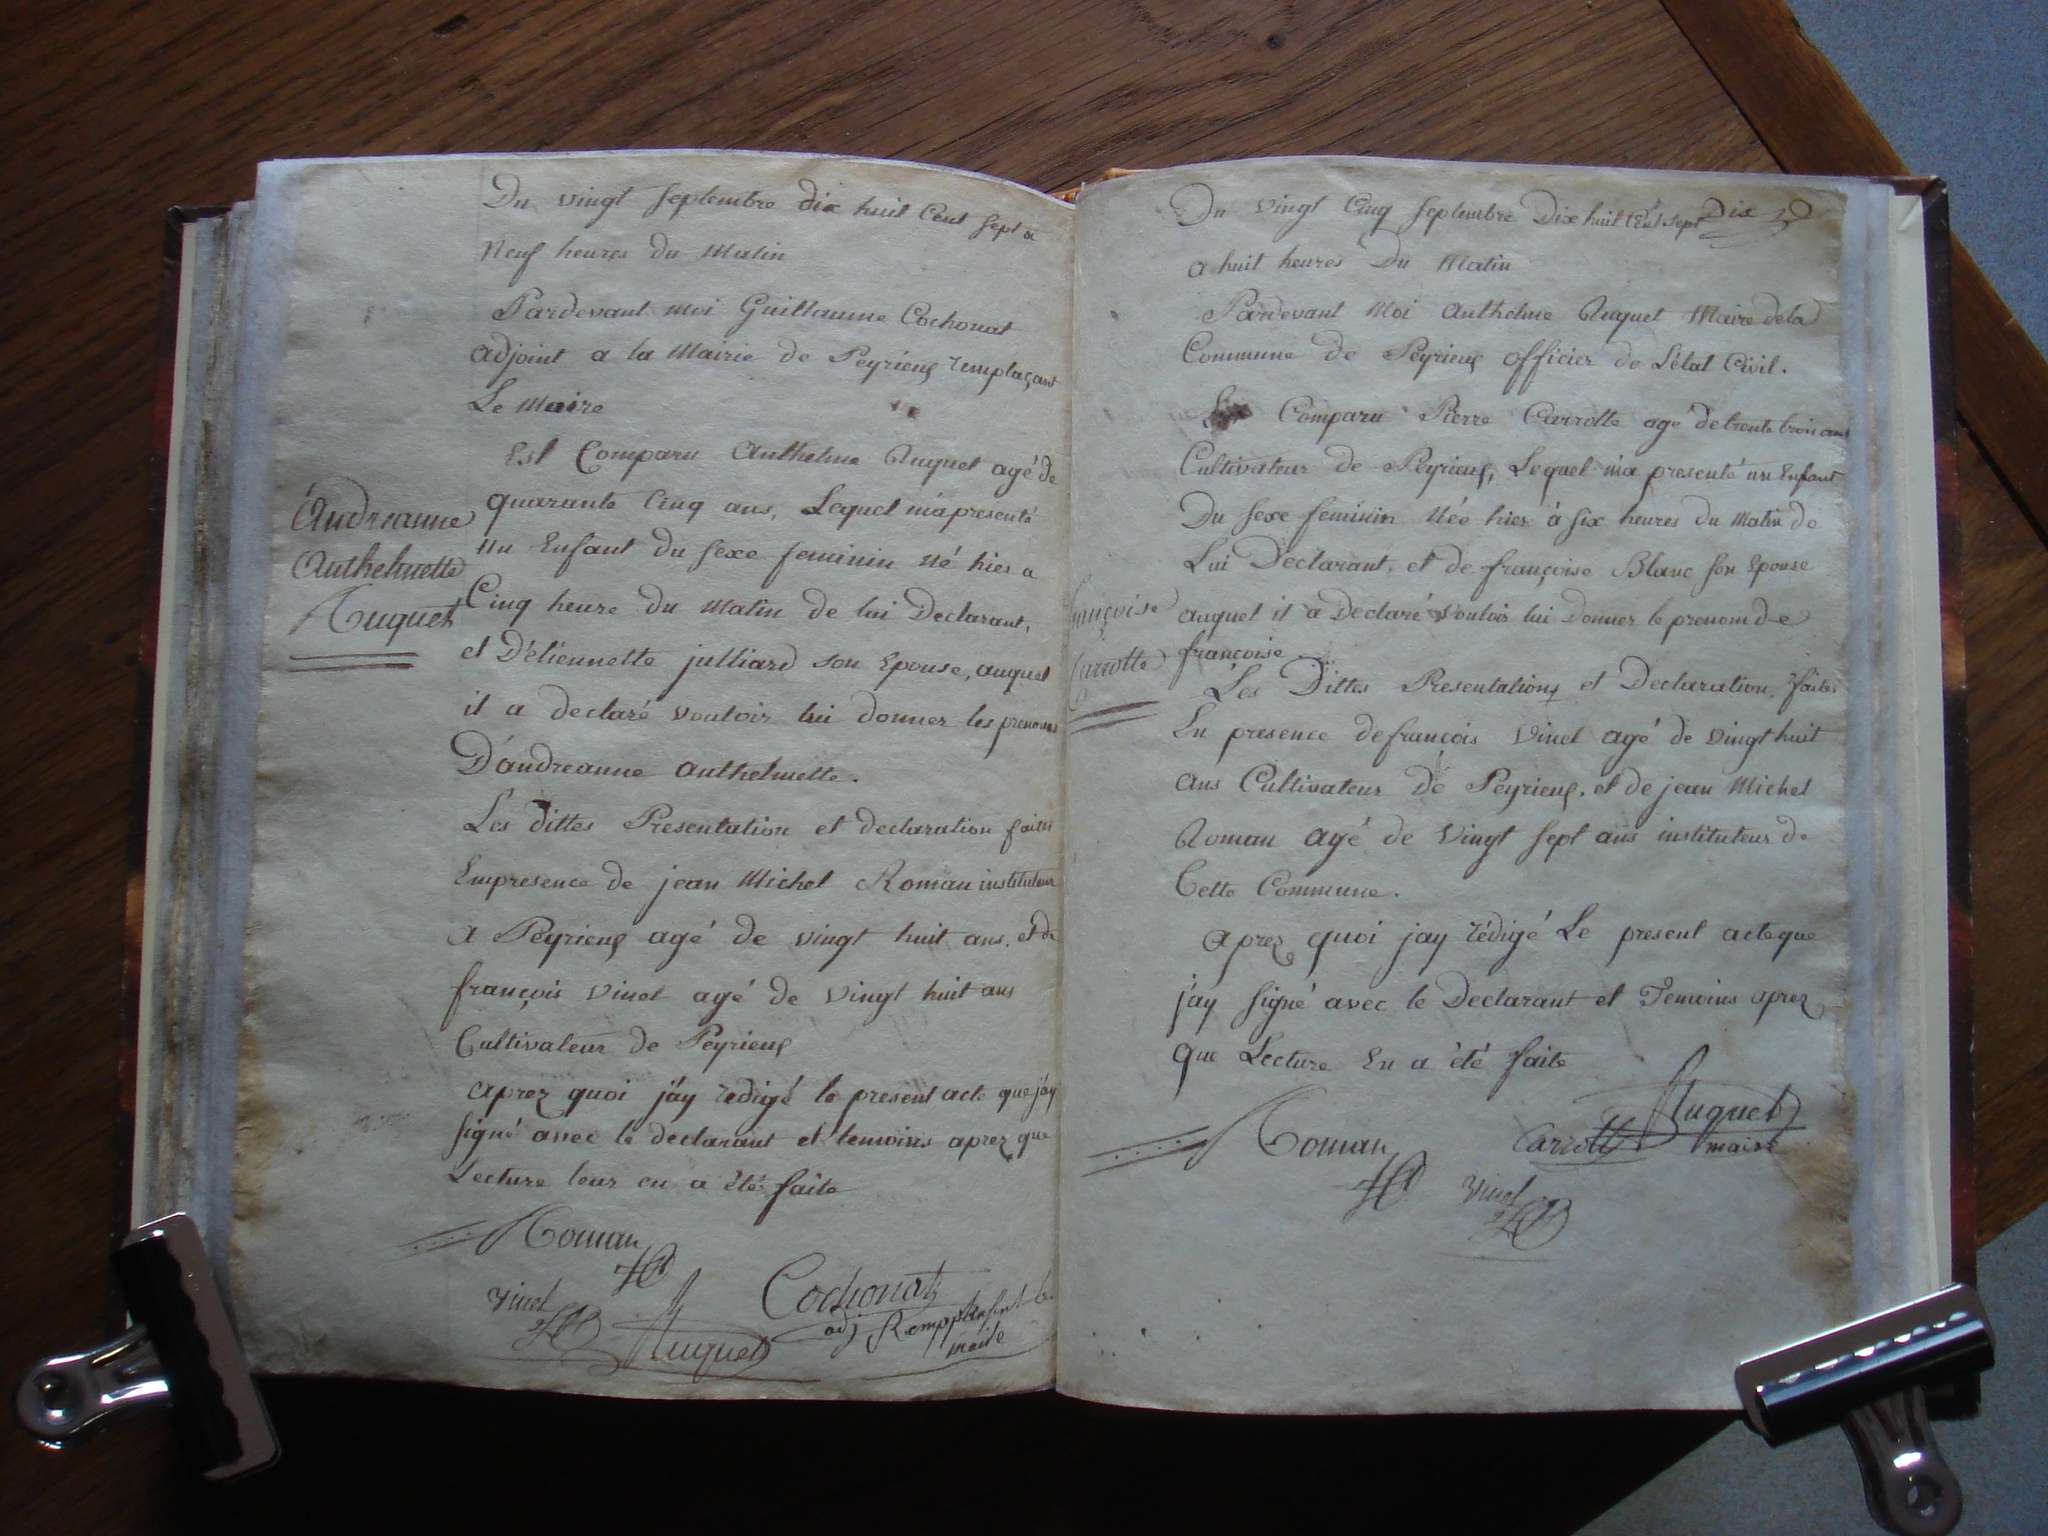 Du vingt septembre dix huit cent sept a
Neuf heures du Matin
Pardevant moi Guillaume Cochonat
adjoint a la Mairie de Peyrieus remplaçant
Le Maire
Est Comparu Anthelme Ruguet agé de
quarante Cinq ans, Lequel m'a presenté
Un Enfant du sexe feminin né hier a
Cinq heure du Matin de lui Declarant,
et D'étiennette julliard son Epouse, auquel
il a declaré vouloir lui donner les prenoms
D'andreanne anthelmette.
Les dittes Presentation et declaration faites
Enpresence de jean Michel Roman instituteur
a Peyrieus agé de vingt huit ans. et de
françois vinet agé de vingt huit ans
Cultivateur de Peyrieus
aprez quoi j'ay redigé le present acte que j'ay
signé avec le declarant et temoins aprez que
Lecture leur en a été faite
Andreanne
Anthelmette
Ruguet
Roman
vinet
Ruguet
Cochonat
adj Remplasent le
maire
Dix
Du vingt Cinq septembre Dix huit Cent sept
a huit heures Du Matin
Pardevant Moi Anthelme Ruguet Maire de la
Commune de Peyrieus officier de L'état Civil.
Comparu Pierre Carrotte agé de trente trois ans
Cultivateur de Peyrieus, Lequel m'a presenté un Enfant
Du sexe feminin Née hier à six heures du Matin de
Lui Déclarant, et de françoise Blanc son Epouse
auquel il a Declaré vouloir lui donner le prenom de
françoise.
Les Dittes Presentations et Declaration, faites
En presence de françois Vinet agé de vingt huit
ans Cultivateur de Peyrieus. et de jean Michel
Roman agé de vingt sept ans instituteur de
Cette Commune.
aprez quoi jay rédigé Le present acte que
j'ay signé avec le Declarant et Temoins aprez
que Lecture En a été faite
françoise
Carrotte
Roman
Carrotte
Ruguet
maire
vinet